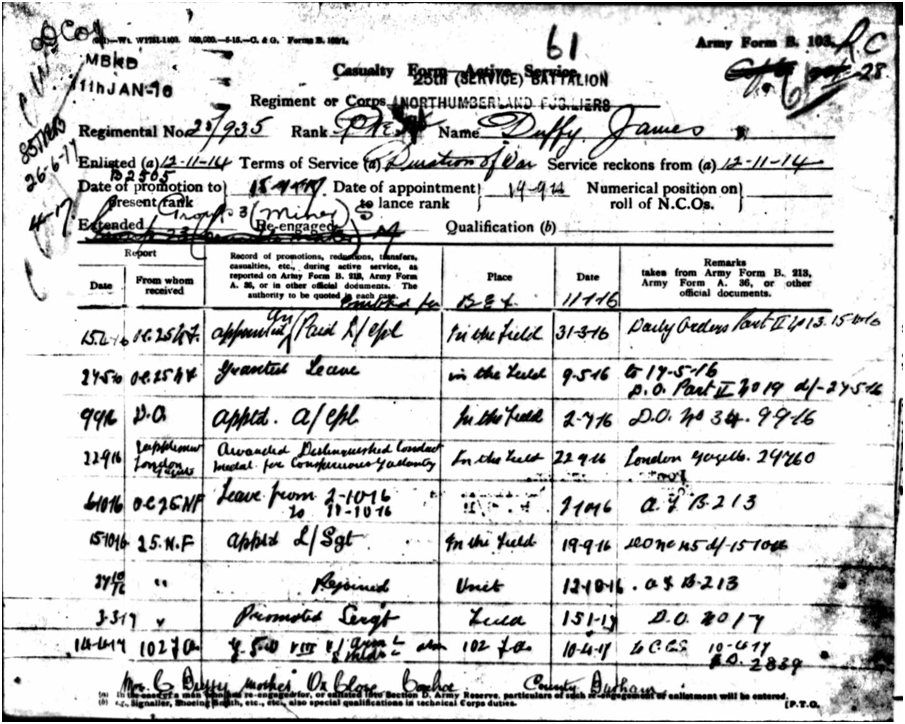 D Coy
61
Army Form B. 103.
R.C
MBRD
11th JAN-16
Casualty Form—Active Service.
25th (SERVICE) BATTALION
28
Regiment or Corps NORTHUMBERLAND FUSILIERS
Regimental No. 25/935 Rank Pte Name Duffy, James
Enlisted (a) 12-11-14 Terms of Service (a) Duration of War Service reckons from (a) 12-11-14
26-6-17
B 2505
Date of promotion to present rank Date of appointment to lance rank Numerical position on roll of N.C.Os.
4-17
Group 3 (Miner)
Extended Re-engaged Qualification (b)
Report
Date From whom received Record of promotions, reductions, transfers, casualties, etc., during active service, as reported on Army Form B. 213, Army Form A. 36, or in other official documents. The authority to be quoted in each case. Place Date Remarks taken from Army Form B. 213, Army Form A. 36, or other official documents.
Embarked for B.E.F. 11-1-16
15.4.16 O.C. 25 N.F. appointed Paid L/Cpl In the Field 31-3-16 Daily Orders Part II No 13
24-5-16 O.C. 25 N.F. Granted Leave in the Field 9.5.16 to 17-5-16
D.O. Part II No 19 d/- 24-5-16
9 9 16 D.O. apptd. a/Cpl In the Field 2-7-16 D.O. No 34. 9 9 16
22 9 16 Supplement London Gazette Awarded Distinguished Conduct Medal for Conspicuous Gallantry In the Field 22 9 16 London Gazette. 29760
O.C. 25 N.F Leave from 2-10-16 A.F. B.213
to 11-10-16
15-10-16 25. N.F apptd L/Sgt In the Field 19-9-16
" Rejoined Unit 12-10-16. A.F. B.213
3-3-17 " Promoted Sergt Field D.O. No 17
14-4-17 102 F.A. 102 F.A. 10-4-17 to CCS 10-4-17
2839
Mrs C Duffy mother County Durham
(a) In the case of a man who has re-engaged for, or enlisted into Section D. Army Reserve, particulars of such re-engagement or enlistment will be entered.
(b) e.g., Signaller, Shoeing Smith, etc., etc., also special qualifications in technical Corps duties. [P.T.O.